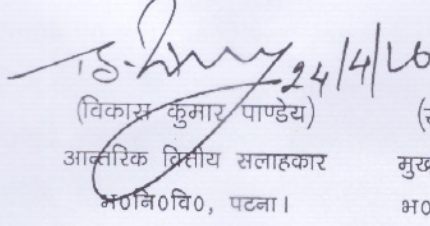 24/4/26
(विकास कुमार पाण्डेय) (
आन्तरिक वित्तीय सलाहकार मुख
भ०नि०वि०, पटना। भ०